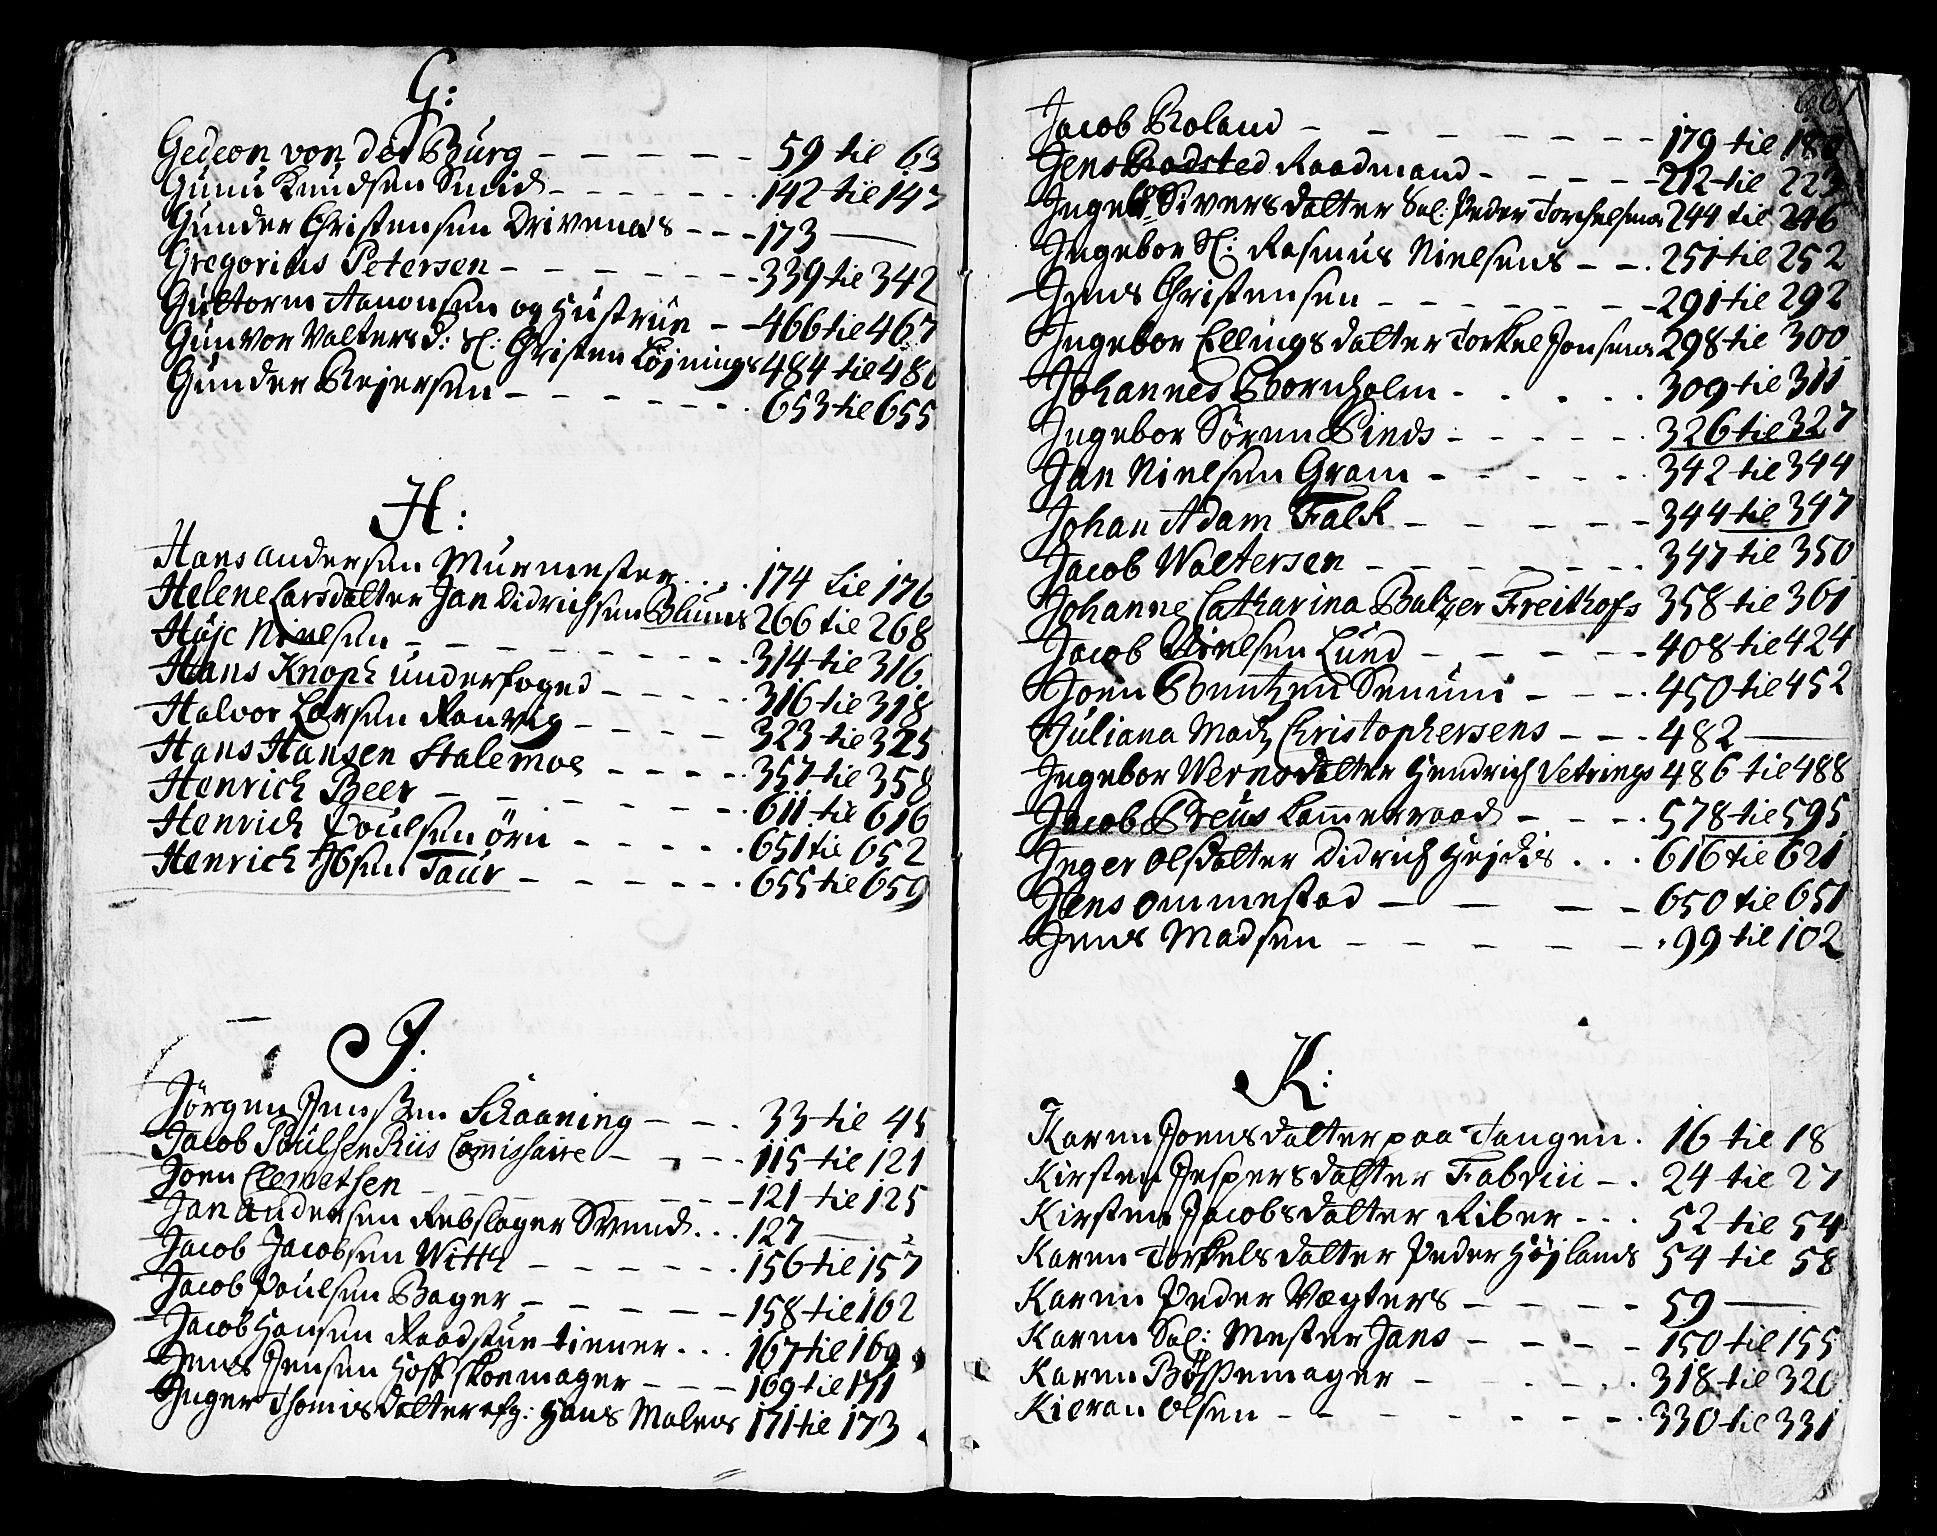 G:
Gedeon von der Burg - - - - - - 59 til 63
Gunu Knudsen Smid - - - - - - 142 til 147
Gunder Christensen Drivenæs - - - 173 —
Gregorius Petersen - - - - - - - 339 til 342
Gultorm Aanonsen og Hustrue - - 466 til 467
Gunvor Valtersd: Sl: Christen Løjnings 484 til 486
Gunder Reiersen - - - - - - 653 til 655
H:
Hans Andersen Murmester . . . 174 til 176
Helene Larsdatter Jan Didrichsen Blums 266 til 268
Høje Nielsen - - - - - - - - 314 til 316
Hans Knoph underfoged - - - - 316 til 318
Halvor Larsen Ranvig - - - - 323 til 325
Hans Hansen Stalemoe - - - - 357 til 358
Henrich Beer - - - - - - - 611 til 616
Henrich Poulsen Ørn - - - - - 651 til 652
Henrich Ibsen Taur - - - - - - 655 til 659
J:
Jørgen Jenssen Schaaning - - - 33 til 45
Jacob Poulsen Riis Commissaire - - - 115 til 121
Joen Clemetsen - - - - - - - - 121 til 125
Jan Andersen Rebslager Svend . . . 127 —
Jacob Jacobsen Witth - - - - - - 156 til 157
Jacob Poulsen Bager - - - - - - 158 til 162
Jacob Hansen Raadstue-tiener . . . 167 til 169
Jens Jensen Høst skoemager - - - 169 til 171
Inger Thomisdatter efg: Hans Maleres 171 til 173
661
Jacob Roland - - - - - - - - 179 til 180
Jens Bodsted Raadmand - - - - - 212 til 223
Ingebr. Siversdatter Sal: Peder Torchelsens 244 til 246
Ingebor Sl: Rasmus Nielsens - - . 251 til 252
Jens Christensen - - - - - - - 291 til 292
Ingebor Ellingsdatter Torkel Jonsens 298 til 300
Johannes Bornholm - . . . . 309 til 311
Ingebor Søren Pinds - - - - - . 326 til 327
Jan Nielsen Gram - - - - - . 342 til 344
Johan Adam Falk - - - - - 344 til 347
Jacob Waltersen - - - - - - . 347 til 350
Johanne Catharina Balzer Freithofs 358 til 361
Jacob Nielsen Lund - - - - - 408 til 424
Joen Bentzen Semini - - - . 450 til 452
Juliana Mads Christophersens - - - 482 —
Ingebor Wernsdatter Hendrich Vetrings 486 til 488
Jacob Preus Cammerraad - - - . 578 til 595
Inger Olsdatter Didrich Hejdis . . . 616 til 621
Jens Ommestad - - - - - 650 til 651
Jens Madsen - - - - - - . 99 til 102
K:
Karen Joensdatter paa Tangen . 16 til 18
Kirsten Jespersdatter Fabricii - . 24 til 27
Kirsten Jacobsdatter Riber - . . 52 til 54
Karen Torkelsdatter Peder Højlands 54 til 58
Karen Peder Vægters - - - - 59 —
Karen Sal: Mester Jans - - - - 150 til 155
Karen Bøssemager - - - - - . 318 til 320
Kieran Olsen - - - - - - - . 330 til 331